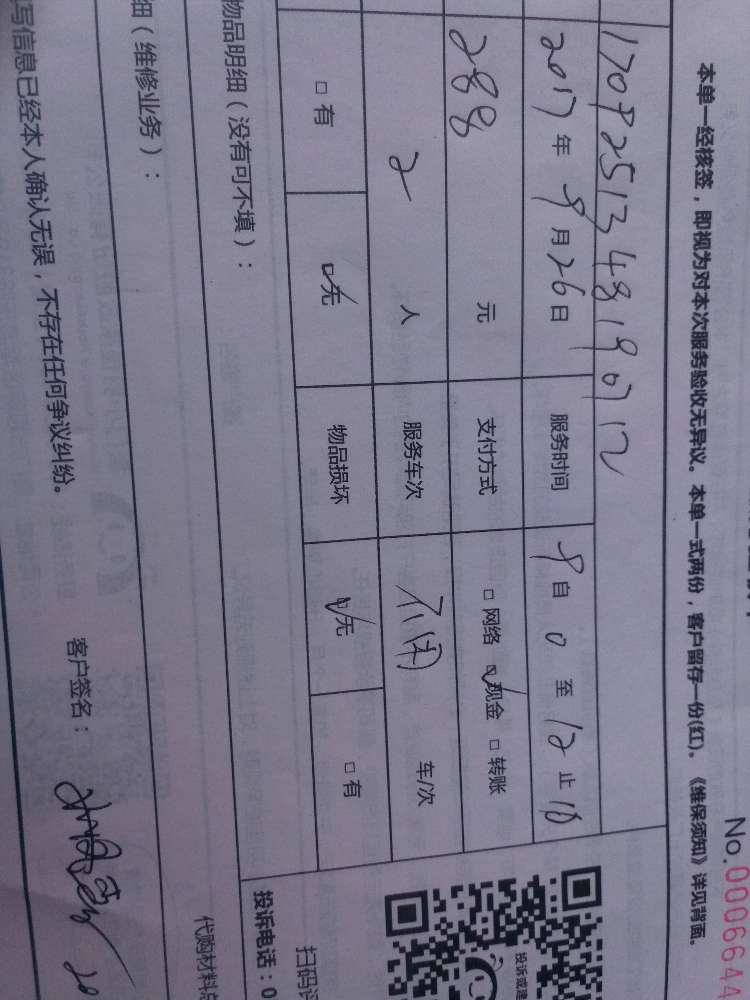 No.0006644
本单一经核签，即视为对本次服务验收无异议。本单一式两份，客户留存一份(红)。《维保须知》详见背面。
1709251348190712
2017年9月26日 服务时间 9自0至12止10
288 元 支付方式 □网络 ☑现金 □转账
2 人 服务车次 不用 车/次
□有 ☑无 物品损坏 ☑无 □有
物品明细（没有可不填）：
投诉电话：0
投诉或建
扫码评
代购材料总
细（维修业务）：
写信息已经本人确认无误，不存在任何争议纠纷。
客户签名：